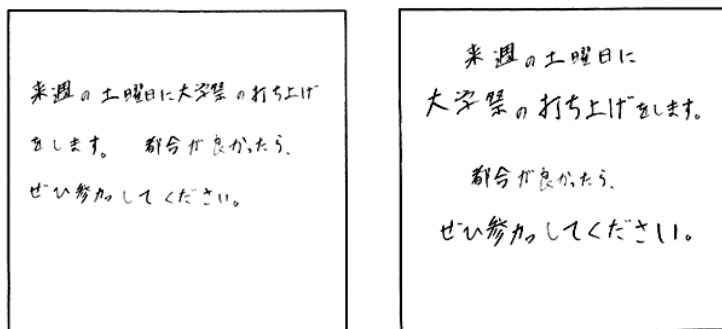 来週の土曜日に大学祭の打ち上げ
をします。 都合が良かったら、
ぜひ参加してください。
来週の土曜日に
大学祭の打ち上げをします。
都合が良かったら、
ぜひ参加してください。